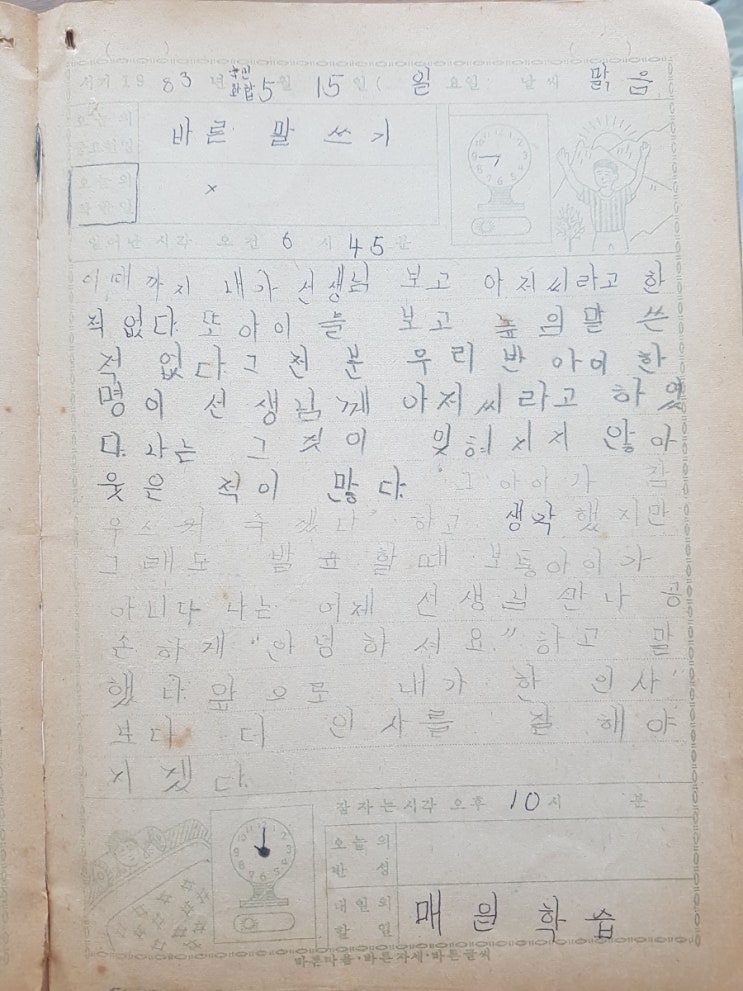 ( ) ( )
서기 19 83 년 국민화합 5 월 15 일 ( 일 요일 날씨 맑음
오늘의 중요한일 바른 말 쓰기
오늘의 착한일 ×
일어난 시각 오전 6 시 45 분
이때까지 내가 선생님 보고 아저씨라고 한
적 없다. 또 아이들 보고 높임말 쓴
적 없다. 그전분 우리반 아이 한
명이 선생님께 아저씨라고 하였
다. 나는 그 것이 잊혀지지 않아
웃은 적이 많다. "그 아이가 참
우스워 죽겠다" 하고 생각했지만
그래도 발표할 때 보통아이가
아니다. 나는 어제 선생님 만나 공
손하게 "안녕하서요" 하고 말
했다. 앞으로 내가 한 인사
보다 더 인사를 잘 해야
지겠다.
잠자는시각 오후 10 시 분
오늘의 반성
내일의 할일 매일 학습
바른마음·바른자세·바른글씨